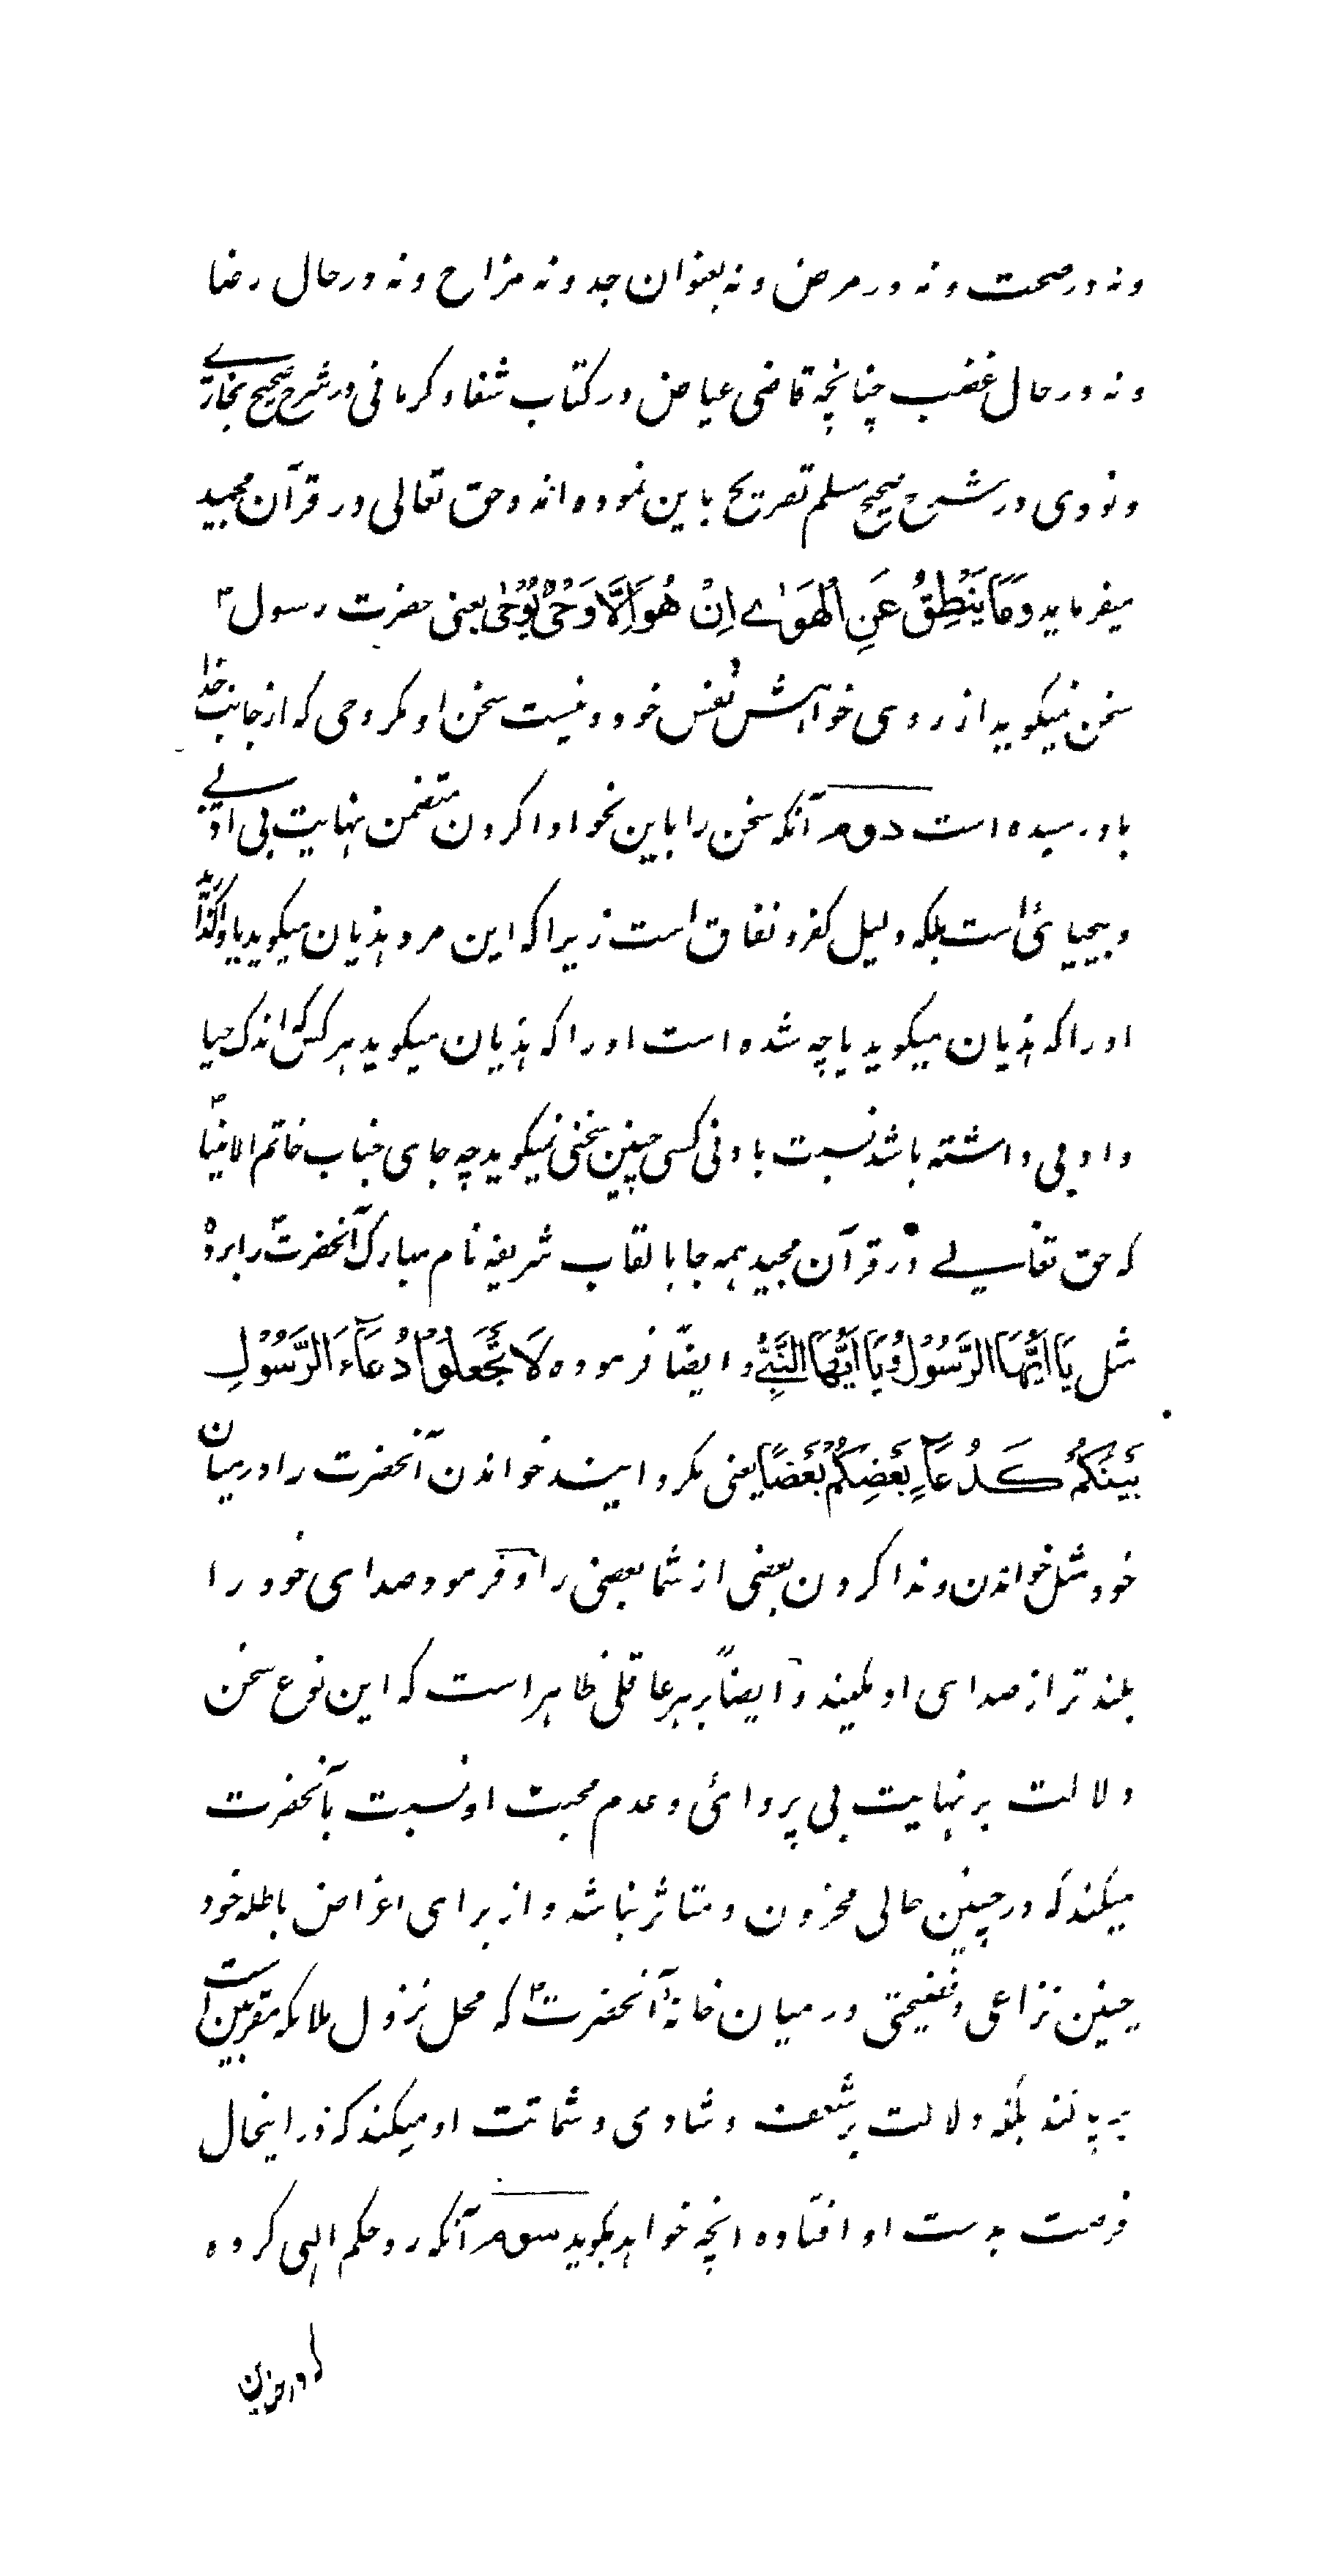 و نه در صحت و نه در مرض و نه بعنوان جد و نه مزاح و نه در حال رضا
و نه در حال غضب چنانچه قاضی عیاض در کتاب شفا و کرمانی در شرح صحیح بخاری
و نووی در شرح صحیح مسلم تصریح باین نموده اند و حق تعالی در قرآن مجید
میفرماید وَمَا يَنْطِقُ عَنِ الْهَوٰے اِنْ هُوَ اِلَّا وَحْیٌ يُوْحٰی یعنی حضرت رسول ؐ
سخن نمیگوید از روی خواهش نفس خود و نیست سخن او مگر وحی که از جانب خدا
باو رسیده است دوم آنکه سخن را باین نحو ادا کردن متضمن نهایت بی ادبے
و بیحیائی است بلکه دلیل کفر و نفاق است زیرا که این مرد هذیان میگوید یا واگذارید
او را که هذیان میگوید یا چه شده است او را که هذیان میگوید هر کس که اندک حیا
و ادبی داشته باشد نسبت بادنی کسی چنین سخنی نمیگوید چه جای جناب خاتم الانبیا ؐ
که حق تعالے در قرآن مجید همه جا بالقاب شریفه نام مبارک آنحضرت ؐ را برده
مثل يَا اَيُّهَا الرَّسُوْلُ وَيَا اَيُّهَا النَّبِیُّ و ایضًا فرموده لَا تَجْعَلُوْا دُعَآءَ الرَّسُوْلِ
بَيْنَكُمْ كَدُعَآءِ بَعْضِكُمْ بَعْضًا یعنی مگردانید خواندن آنحضرت را در میان
خود مثل خواندن و ندا کردن بعضی از شما بعضی را و فرمود صدای خود را
بلند تر از صدای او مکنید و ایضاً بر هر عاقلی ظاهر است که این نوع سخن
دلالت بر نهایت بی پروائی و عدم محبت او نسبت بآنحضرت
میکند که در چنین حالی محزون و متاثر نباشد و از برای اغراض باطله خود
چنین نزاعی و فضیحتی در میان خانهٔ آنحضرت ؐ که محل نزول ملائکه مقربین است
بر پا کند بلکه دلالت بر شعف و شادی و شماتت او میکند که در اینحال
فرصت بدست او افتاده انچه خواهد بگوید سوم آنکه رد حکم الهی کرده